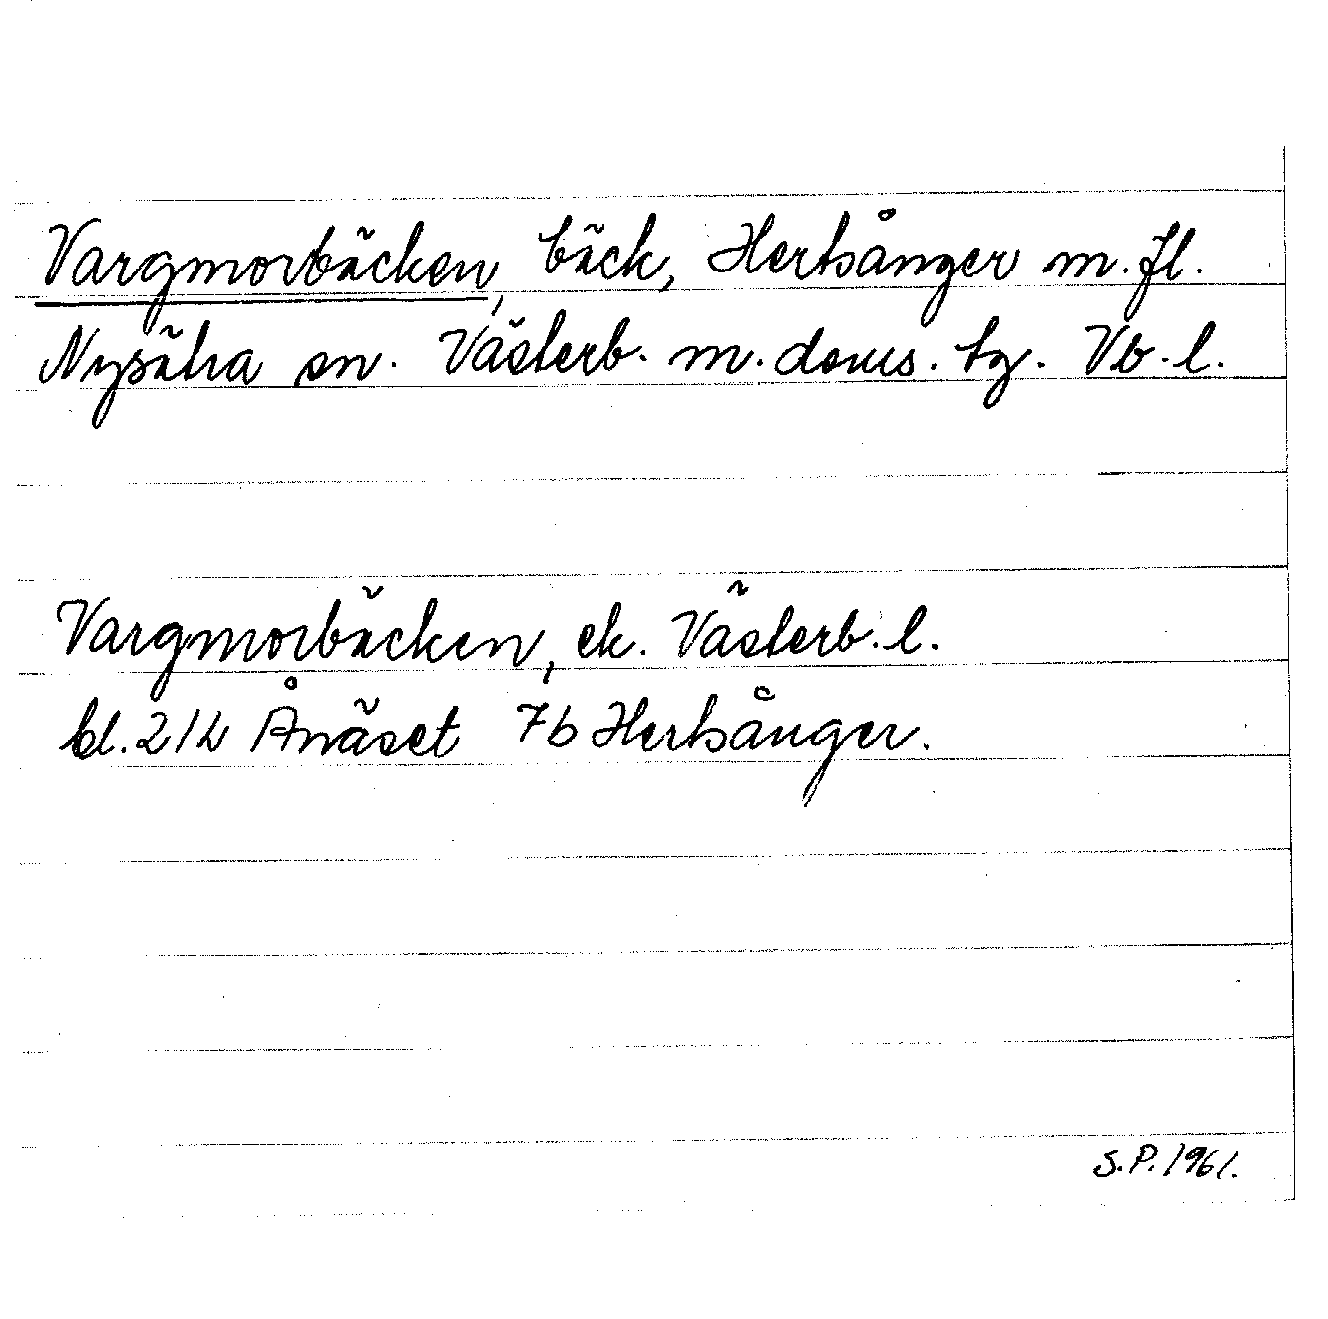 Vargmorbäcken, bäck, Hertsånger m.fl.
Nysätra sn. Västerb. m. doms. tg. Vb. l.
Vargmorbäcken, ek. Västerb. l.
bl. 21L Ånäset 7b Hertsånger.
S.P. 1961.